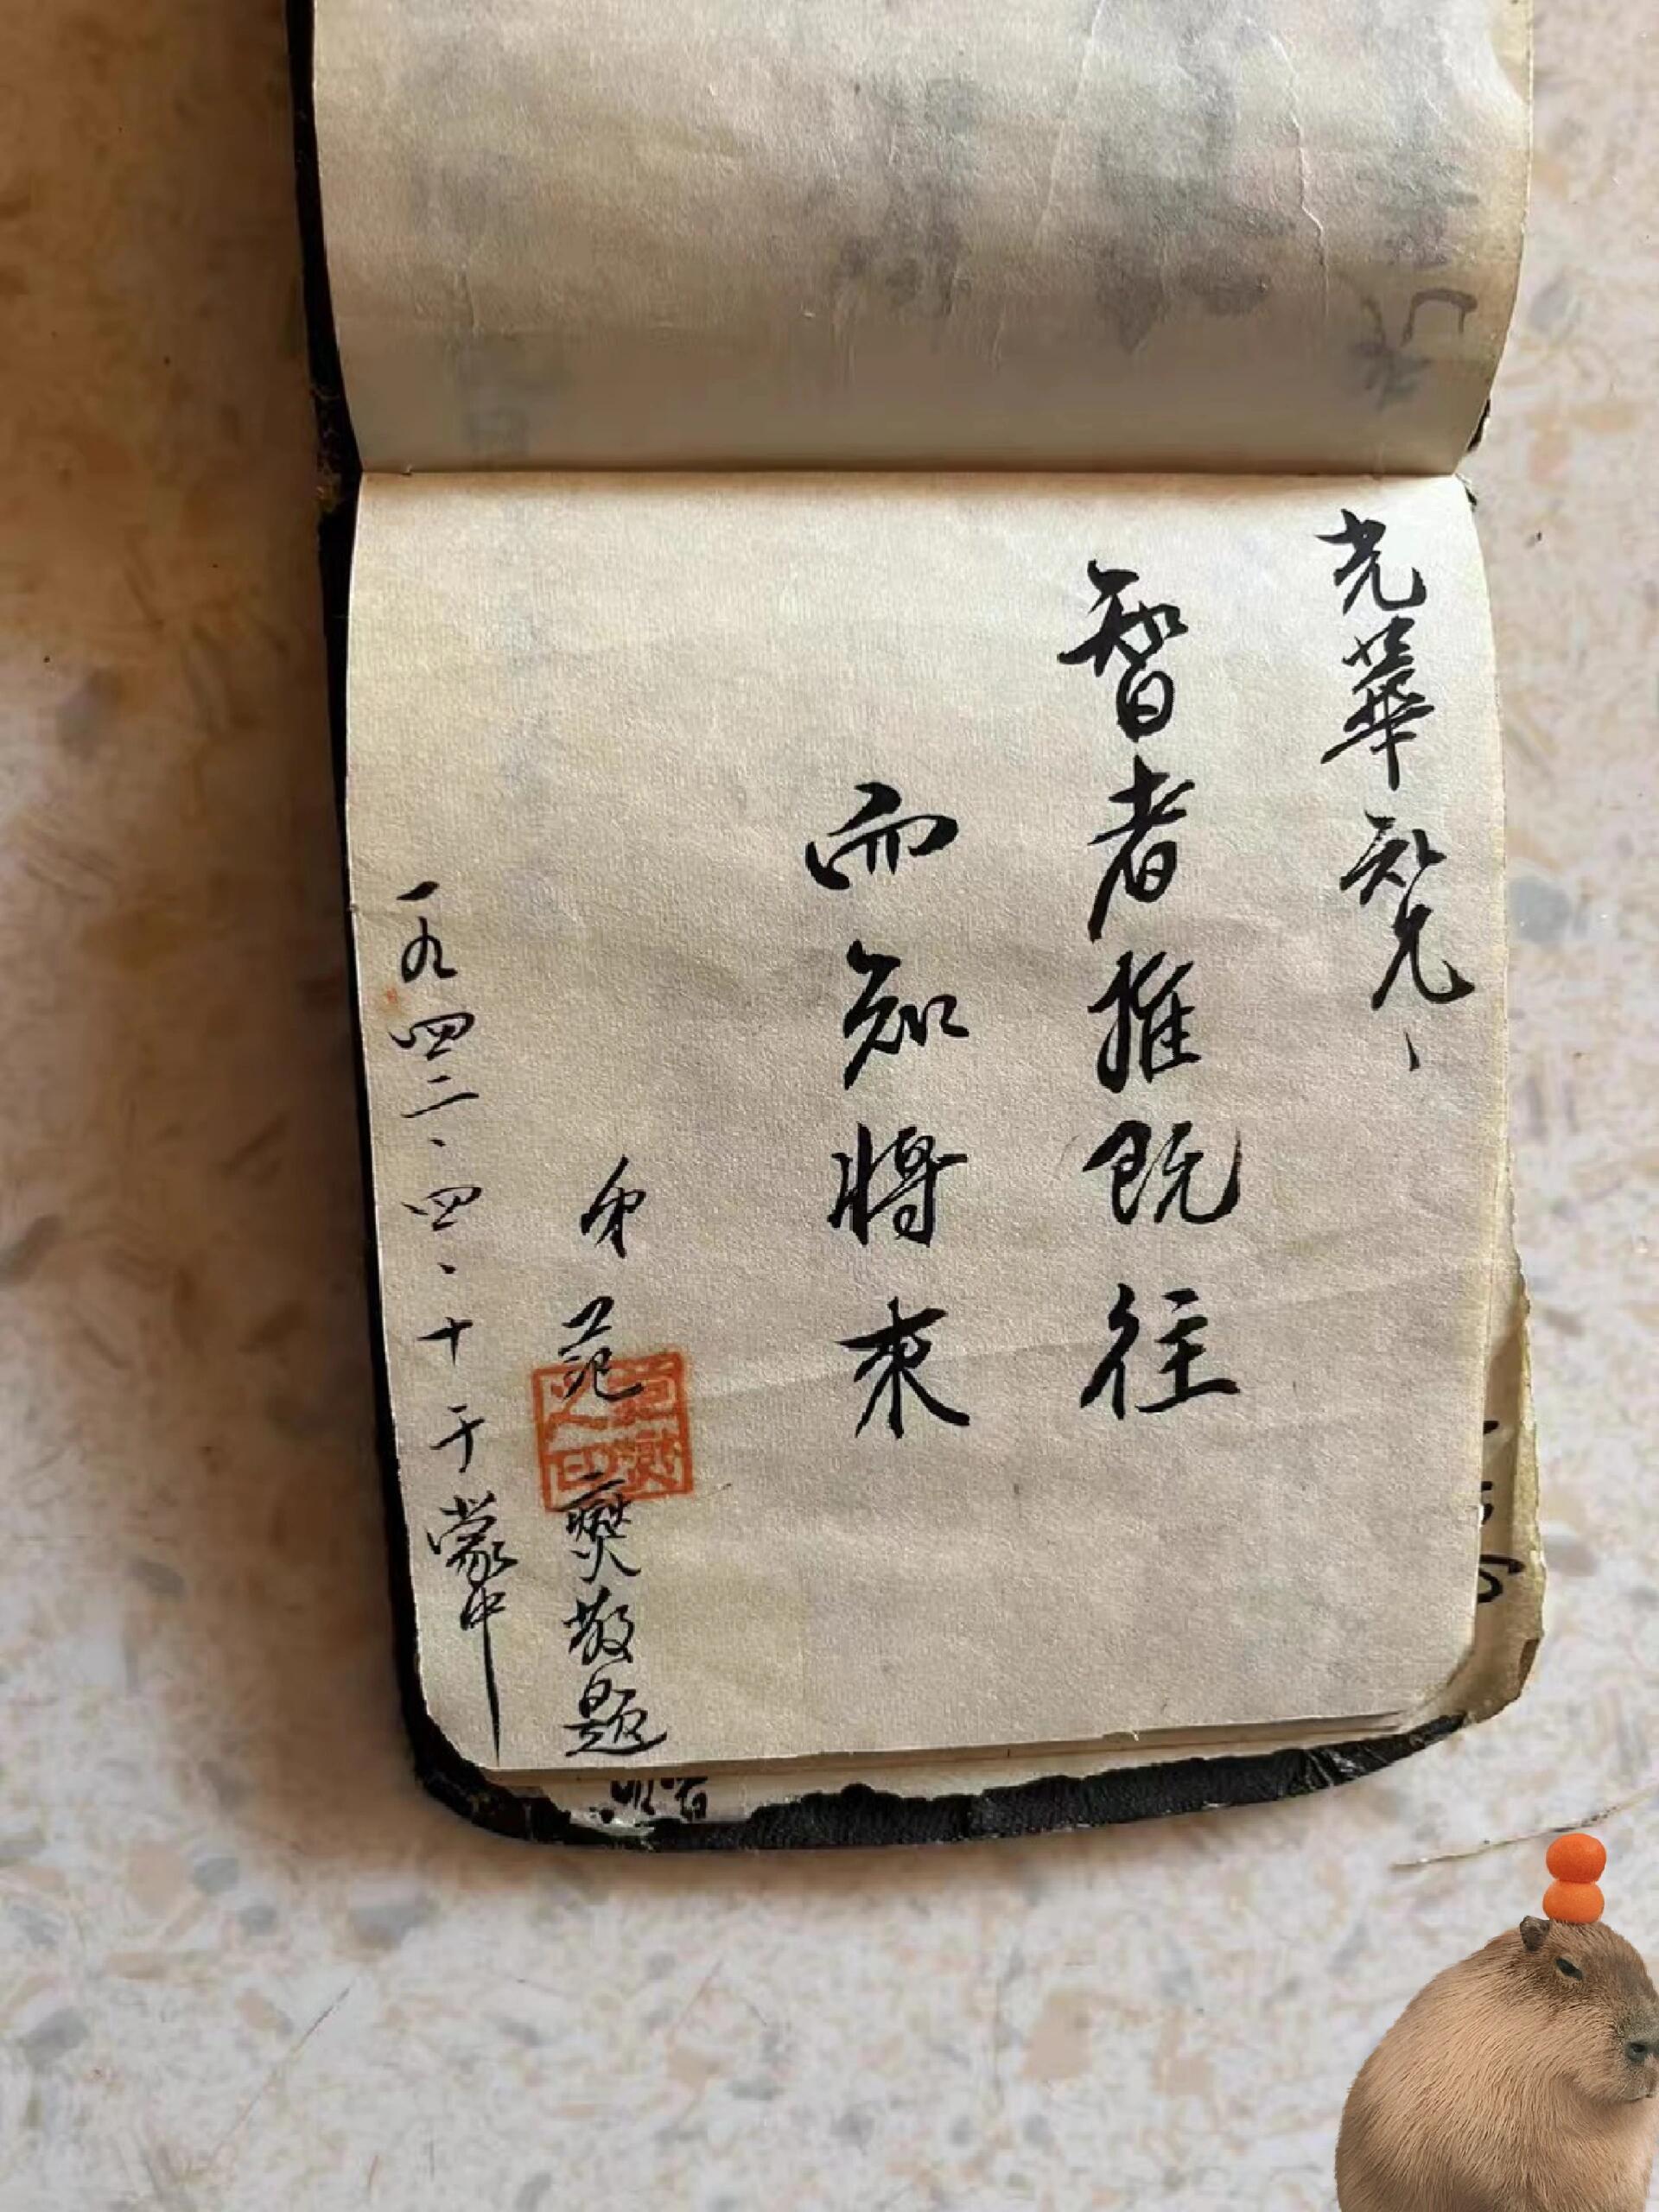 光華知兄、
智者推既往
而知將來
弟 范燹敬題
一九四二、四、十于蒙中